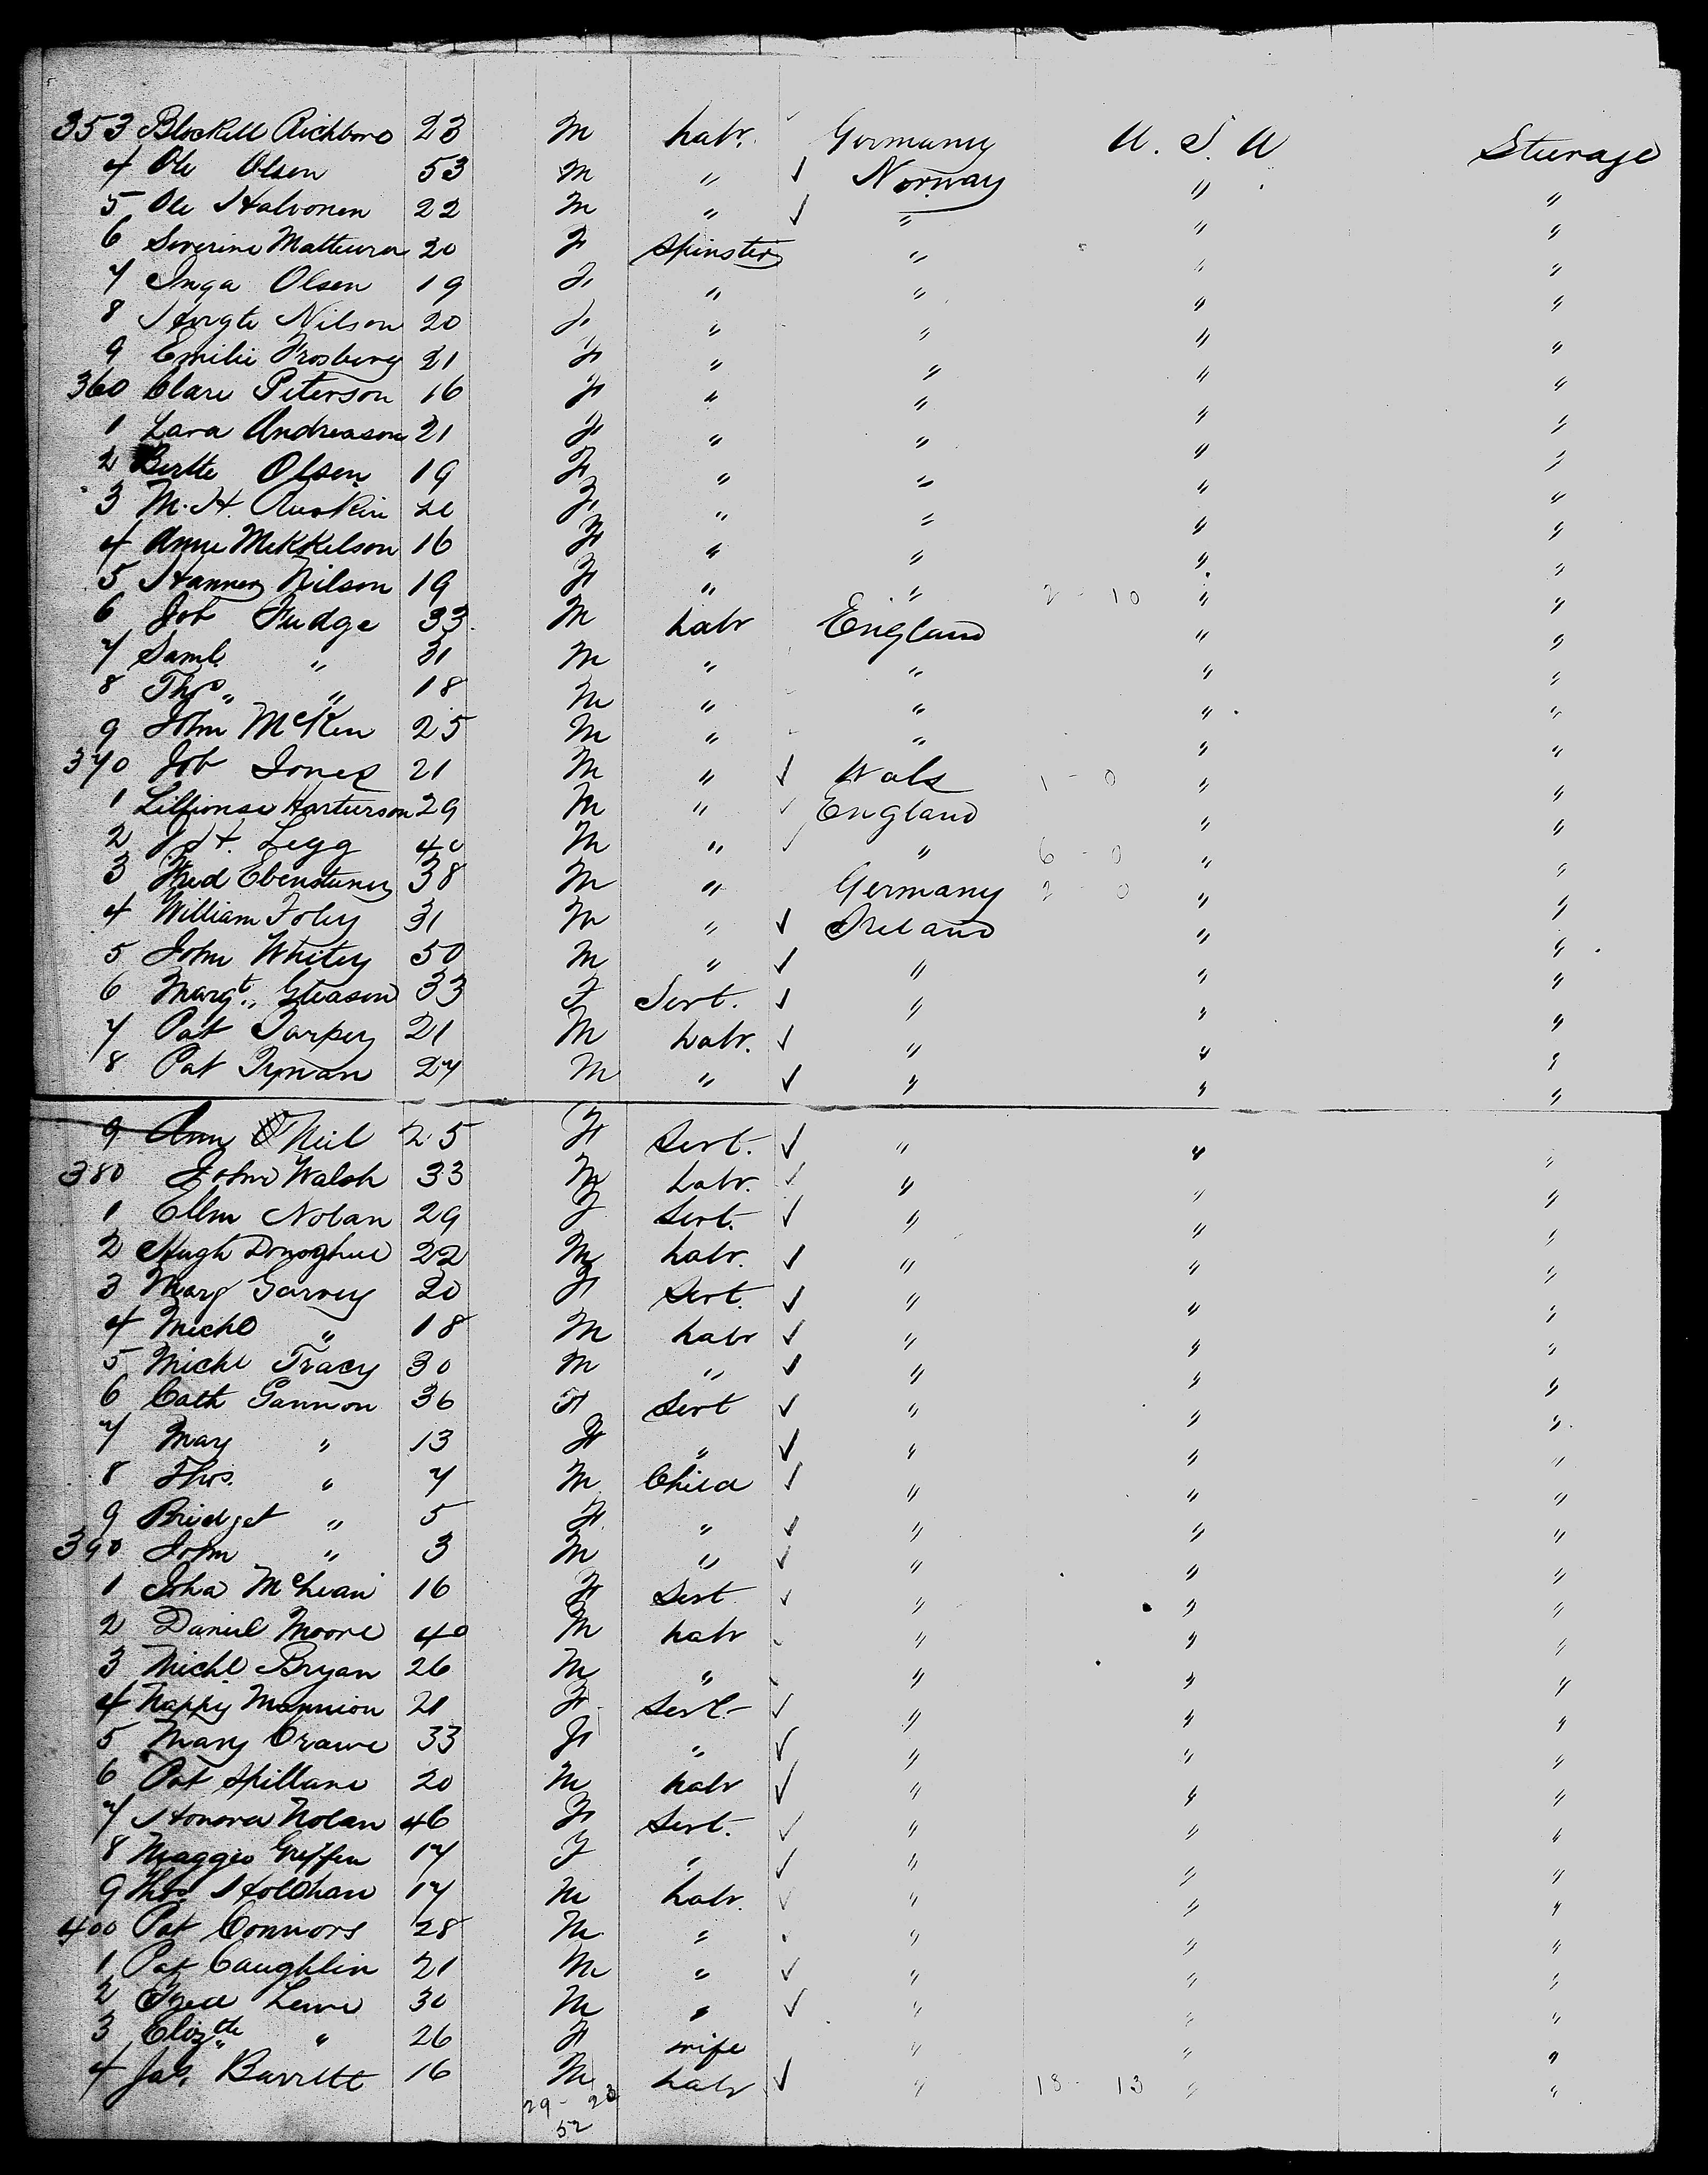 353 Blockell Richboro 23 M Labr. Germany U. S. A Steerage
4 Ole Olsen 53 M " ✓ Norway " "
5 Ole Halvonen 22 M " ✓ " " "
6 Severine 20 F Spinster " " "
7 Inga Olsen 19 F " " " "
8 Nilson 20 F " " " "
9 Emilie Frosberg 21 F " " " "
360 Clare Peterson 16 F " " " "
1 Lara Andreason 21 F " " " "
2 Berthe Olsen 19 F " " " "
3 M. H. 20 F " " " "
4 Anne Mekkelson 16 F " " " "
5 Hanner Nilson 19 F " " 2 - 10 " "
6 Job Fudge 33 M Labr England " "
7 Saml. " 31 M " " " "
8 Thos " 18 M " " " "
9 John McKen 25 M " " " "
370 Job Jones 21 M " ✓ Wals 1 - 0 " "
1 29 M " ✓ England " "
2 J. H. Legg 40 M " ✓ " 6 - 0 " "
3 Fred 38 M " Germany 2 - 0 " "
4 William Foley 31 M " ✓ Ireland " "
5 John Whitey 50 M " ✓ " " "
6 Margt. Gleason 33 F Sert. ✓ " " "
7 Pat Tarpey 21 M Labr. ✓ " " "
8 Pat Tynan 27 M " ✓ " " "
9 Ann O'Neil 25 F Sert. ✓ " " "
380 John Walsh 33 M Labr. ✓ " " "
1 Ellen Nolan 29 F Sert. ✓ " " "
2 Hugh Donoghue 22 M Labr. ✓ " " "
3 Marg Garvey 20 F Sert. ✓ " " "
4 Michl " 18 M Labr ✓ " " "
5 Michl Tracy 30 M " ✓ " " "
6 Cath Gannon 36 F Sert ✓ " " "
7 Mary " 13 F " ✓ " " "
8 Thos. " 7 M Child ✓ " " "
9 Bridget " 5 F " ✓ " " "
390 John " 3 M " ✓ " " "
1 Joha McLean 16 F Sert ✓ " " "
2 Daniel Moore 40 M Labr " " "
3 Michl Bryan 26 M " " " "
4 Nappy Mannion 21 F Sert. ✓ " " "
5 Mary Crawe 33 F " ✓ " " "
6 Pat Spillane 20 M Labr ✓ " " "
7 Honora Nolan 46 F Sert. ✓ " " "
8 Maggie Griffen 17 F " ✓ " " "
9 Thos. Holohan 17 M Labr. ✓ " " "
400 Pat Connors 28 M " " " "
1 Pat Caughlin 21 M " ✓ " " "
2 Fred Lewe 30 M " ✓ " " "
3 Elizth " 26 F wife " " "
4 Jas. Barrett 16 M Labr ✓ " 13 - 13 " "
29 - 23
52